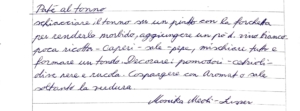 Paté al tonno
schiacciare il tonno su un piatto con la forchetta
per renderlo morbido, aggiungere un pò d. vino bianco
poca ricotta - Caperi - sale - pepe, mischiare tutto e
formare un tondo. Decorare: pomodori - cetrioli -
olive nere e rucola. Cospargere con Aromat o sale
soltanto la verdura.
Monika